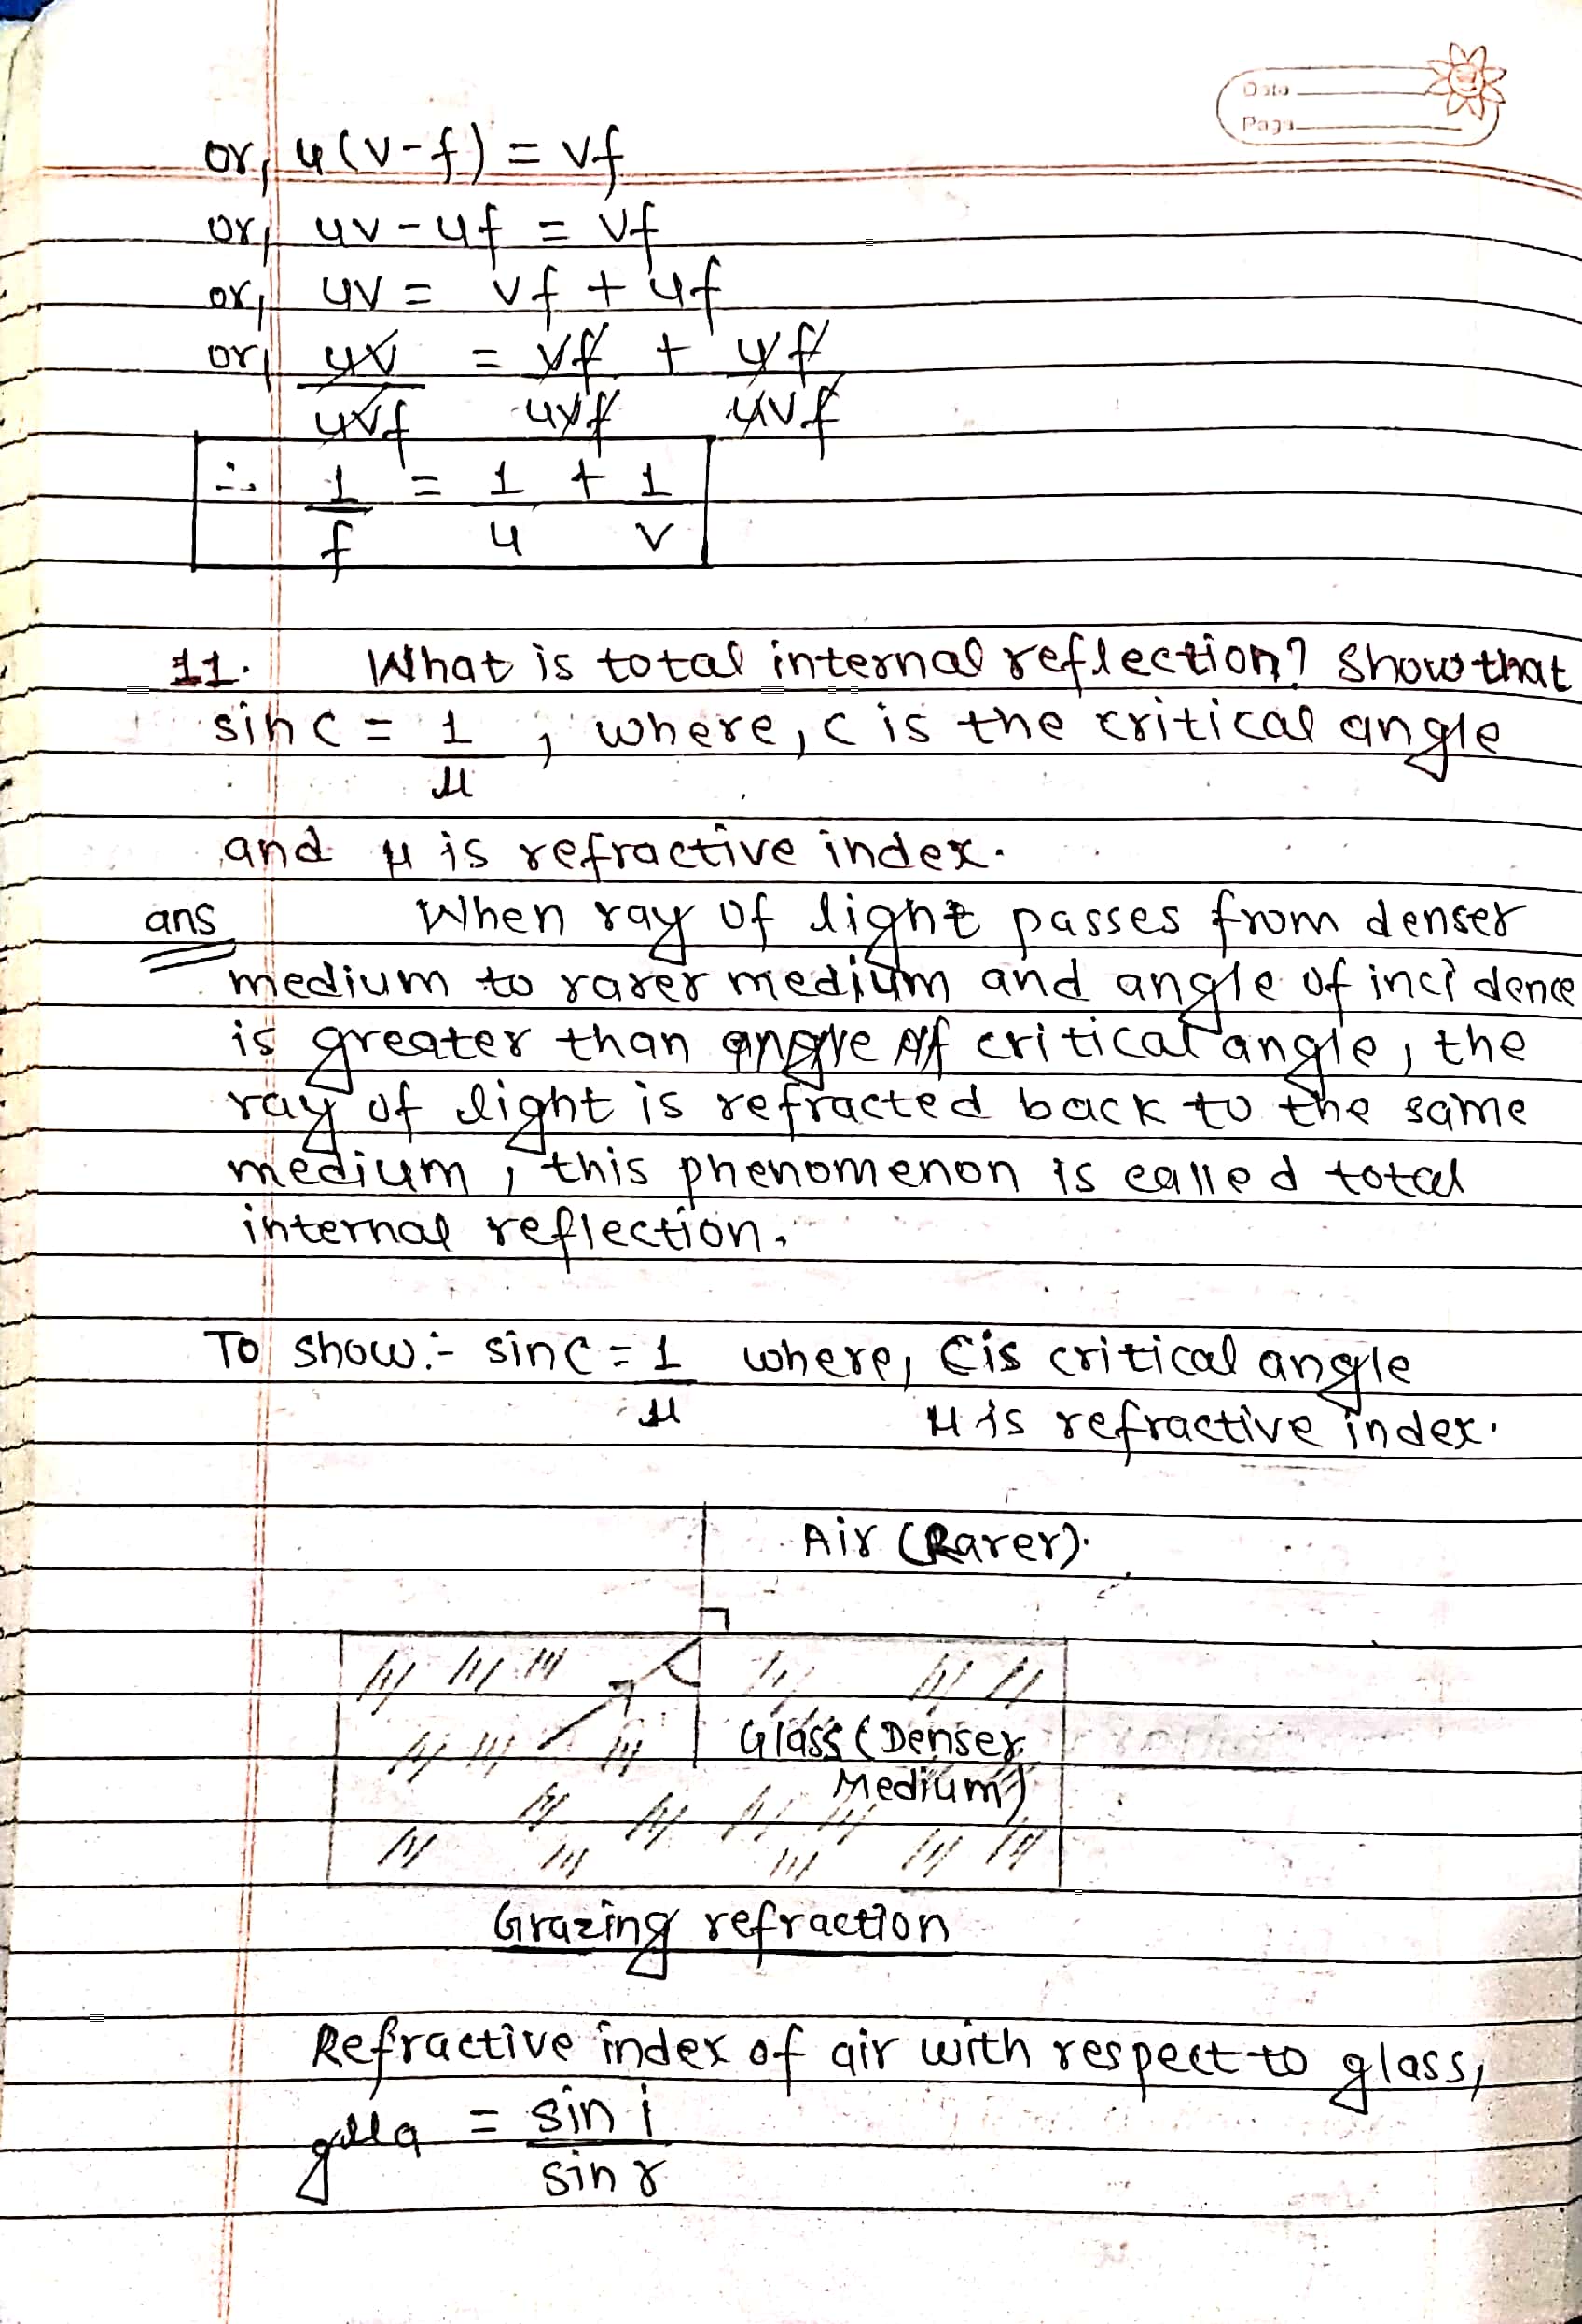 Date
Page
or, u(v-f) = vf
or, uv - uf = vf
or, uv = vf + uf
or, uv/uvf = vf/uvf + uf/uvf
∴ 1/f = 1/u + 1/v
11. What is total internal reflection? Show that
sin c = 1/μ , where, c is the critical angle
and μ is refractive index.
ans When ray of light passes from denser
medium to rarer medium and angle of incidence
is greater than angle of critical angle, the
ray of light is refracted back to the same
medium, this phenomenon is called total
internal reflection.
To show:- sin C = 1/μ where, C is critical angle
μ is refractive index.
Air (Rarer).
Glass (Denser
Medium)
Grazing refraction
Refractive index of air with respect to glass,
gμa = sin i / sin r